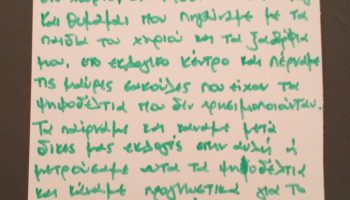 και θυμάμαι που πηγαίναμε με τα
παιδιά του χωριού και τα ξαδέρφια
μου, στο εκλογικό κέντρο και πέρναμε
τις μαύρες σακούλες που είχαν τα
ψηφοδέλτια που δεν χρησιμοποιούνταν.
Τα παίρναμε και κάναμε μετά
δικές μας εκλογές στην αυλή ή
μετρούσαμε αυτά τα ψηφοδέλτια
και κάναμε προγνωστικά για το